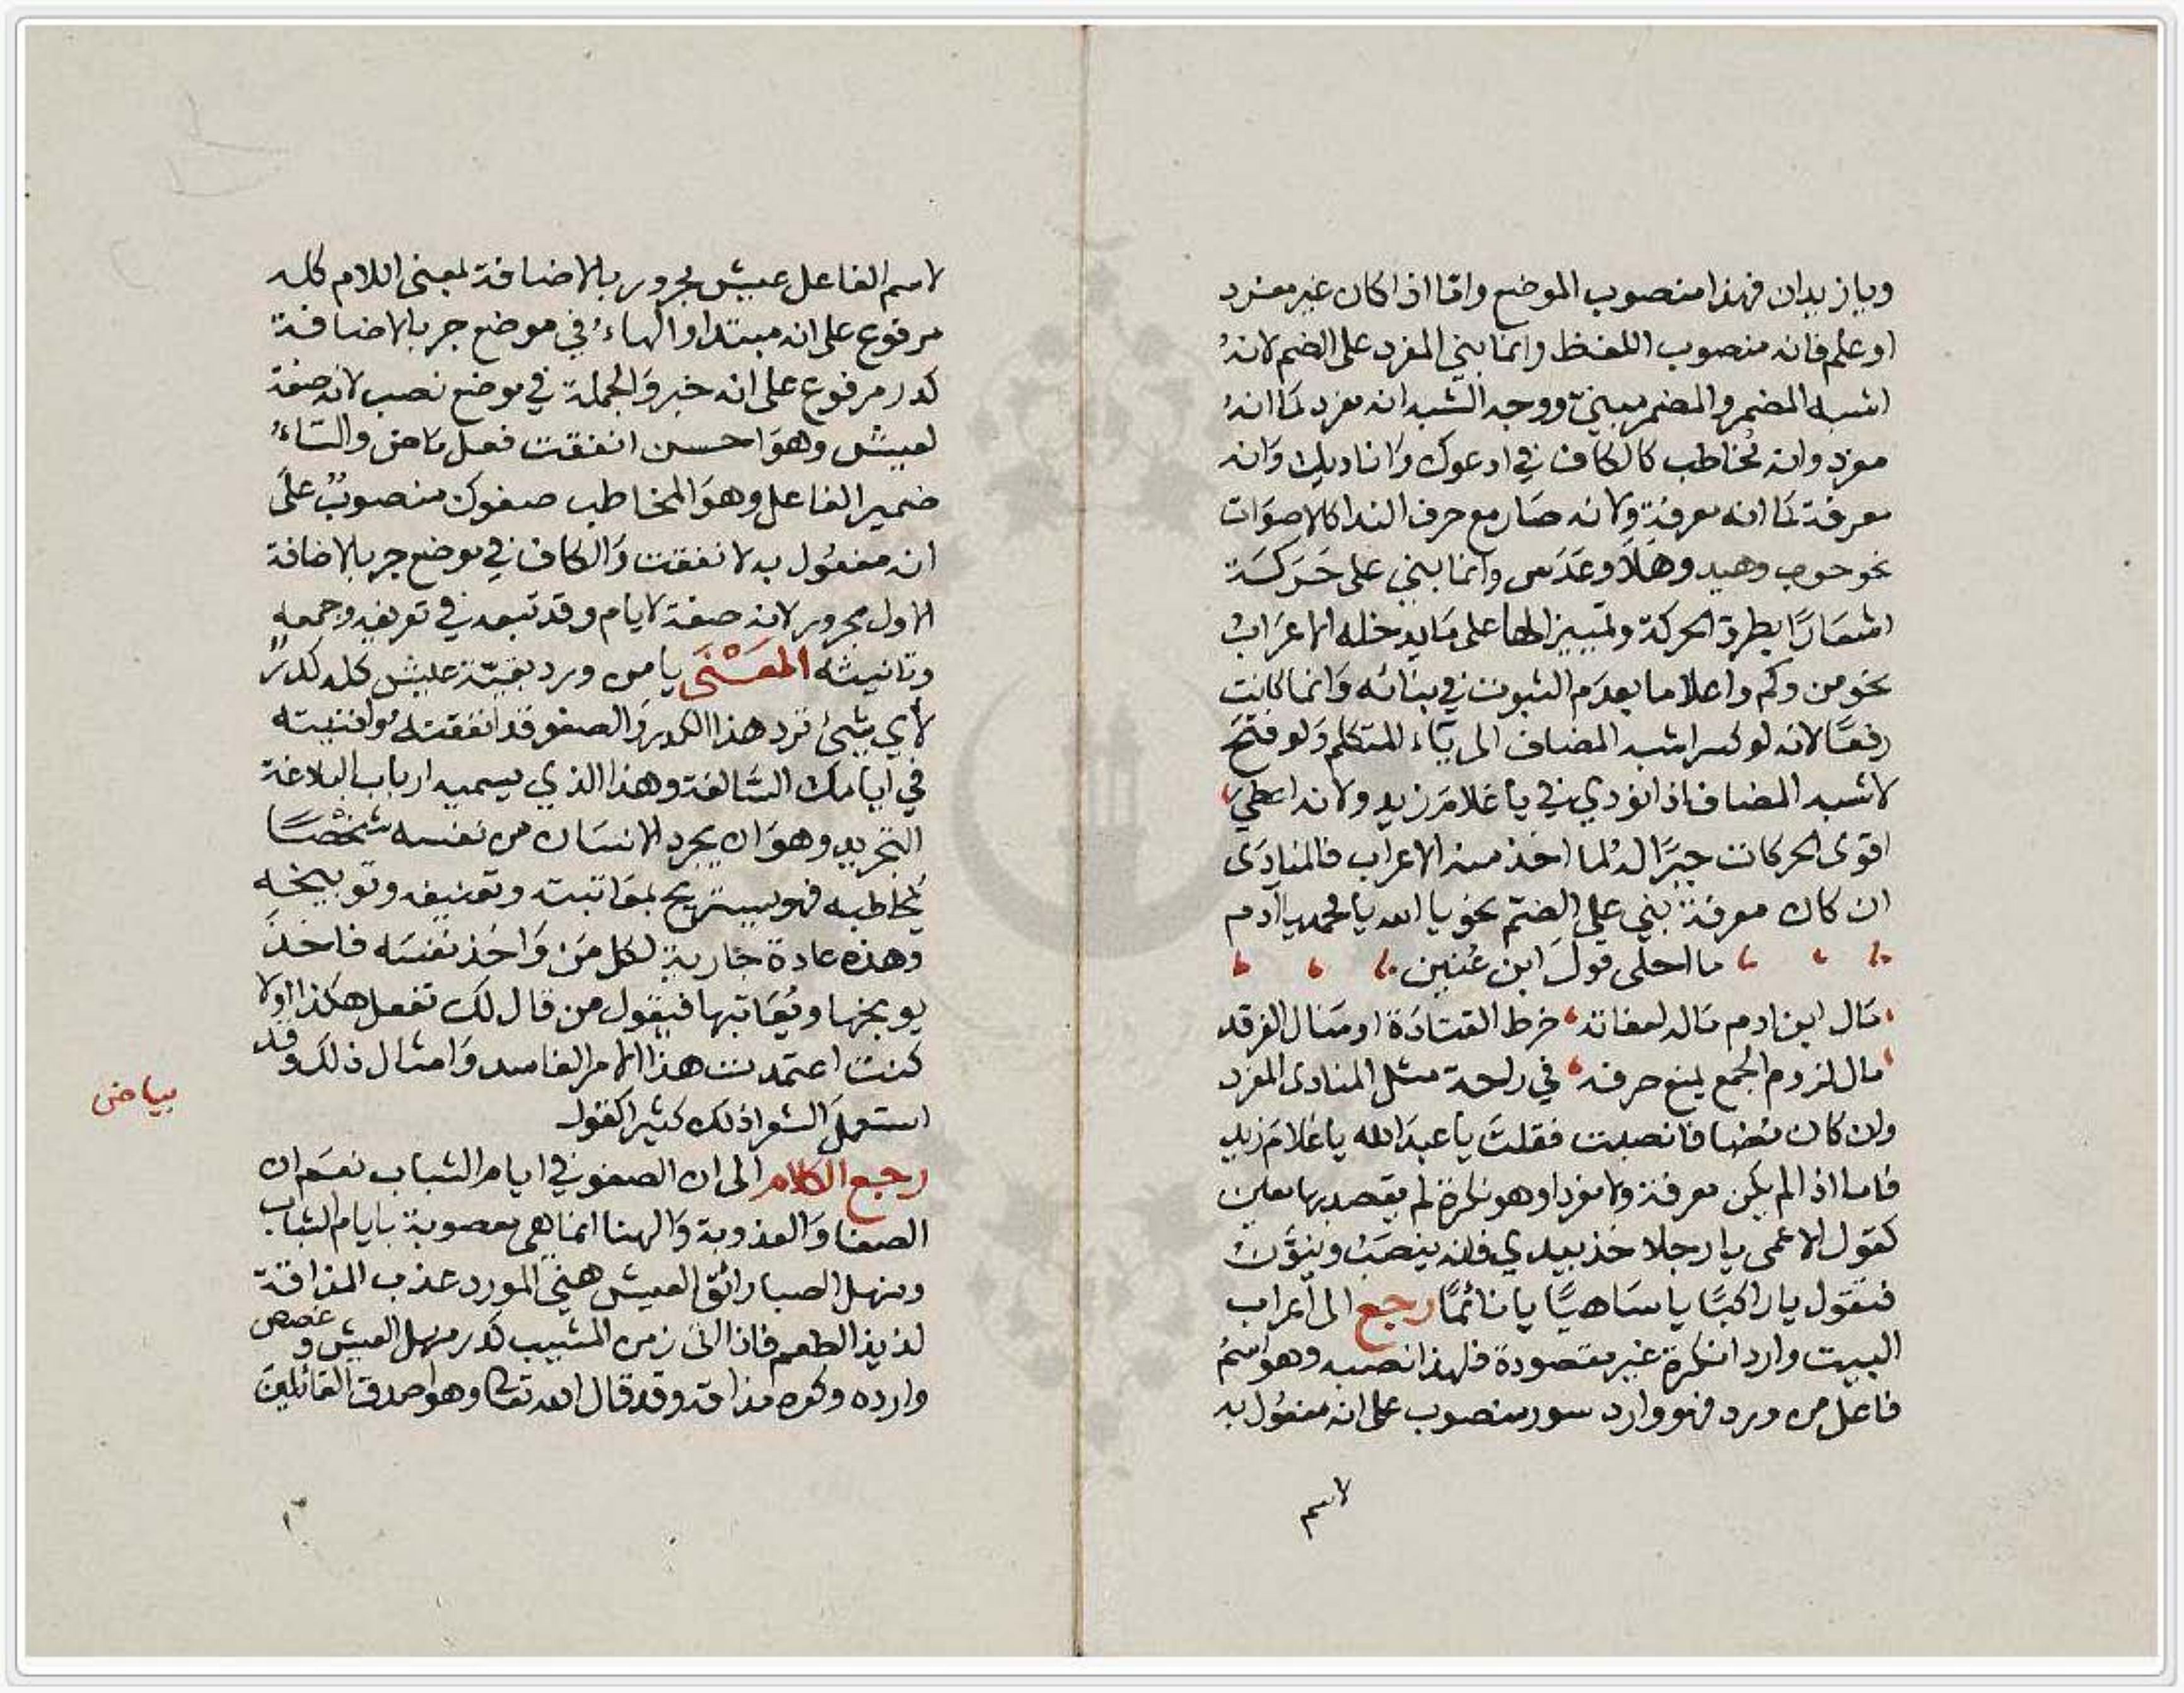 ويازيدان فهذا منصوب الموضع واما اذا كان غير مفرد
او علم فانه منصوب اللفظ وانما بني المفرد على الضم لانهُ
اشبه المضمر والمضمر مبنيّ ووجه الشبه انه مفرد كما انهُ
مفرد وانه مُخاطب كالكاف في ادعوك واناديك وانه
معرفة كما انه معرفة ولانه صار مع حرف الندا كالاصوات
نحو حوب وهيد وهلا وعدس وانما بني على حَركَة
اشعَارًا بطرق الحركة وتمييزا لها على ما يدخله الاعرَابُ
نحو من وكم واعلاما بعدم الثبوت في بنائه وانما كانت
رفعًا لانه لو كسر اشبه المضاف الى ياء المتكلم ولو فتح
لاشبه المضاف اذا نودي في يا غلامَ زيد ولانه اعطي
اقوى الحركات جبرًا له لما اخذ منه الاعراب فالمنادَى
ان كان معرفة بني على الضم نحو يا الله يا محمد يا آدم
ما احلى قول ابن عُنين
مَال ابن ادم مَاله لعفاته خرط القتادَة او منال الفرقد
مال لزوم الجمع يمنع صرفه في راحة مثل المنادى المفرد
وان كان مُضا فانصبت فقلتَ يا عبدَ الله يا غلامَ زيد
فاما اذا لم يكن معرفة ولا مفردا وهو نكرة لم يقصد بها معين
كقول الاعمى يا رجلا خذ بيدي فانه ينصَبُ وينوَّنُ
فتقول يا راكبًا يا سَاهيًا يا نائمًا رجع الى اعراب
البيت واردا نكرة غير مقصودة فلهذا نصبه وهو اسمُ
فاعل من ورد فهو وارد سور منصوب على انه مفعُول به
لاسم
لاسم الفاعل عيش مجرور بالاضافة بمعنى اللام كله
مرفوع على انه مبتدا والهاءُ في موضع جر بالاضافة
كدر مرفوع على انه خبر والجملة في موضع نصب لانه صفة
لعيش وهو احسن انفقت فعل ماض والتاءُ
ضمير الفاعل وهوَ المخاطب صفوك منصوبٌ على
انه مفعُول به لانفقت والكاف في موضع جر بالاضافة
الاول مجرور لانه صفة لايام وقد تبعه في تعريفه وجمعه
وتانيثه المعْنَى يا من ورد بقيّة عيش كله كدرٌ
لأي شئ ترد هذا الكدر والصفو قد انفقته وافنيته
في ايامك السَّالفة وهذا الذي يسميه ارباب البلاغة
التجريد وهو ان يجرد الانسَان من نفسه شخصًا
يُخاطبه فهو يستريح بمعَاتبته وتعنيفه وتوبيخه
وهذه عادة جَارية لكل من وَاخذ نفسَه فاخذ
يوبخها ويُعَاتبها فيقول من قال لك تفعل هكذا اولا
كنت اعتمدت هذا الامر الفاسد وَامثال ذلك وقد
استعمل الشعرا ذلك كثيرا كقول
بياض
رجع الكلام الى ان الصفو في ايام الشباب نعَم ان
الصفا وَالعذوبة وَالهنا انما هي معصوبة بايام الشباب
ومنهل الصبا رائق العيش هنيّ المورد عذب المذاقة
لذيذ الطعم فاذا اتى زمن المشيب كدر منهل العيش وغصص
وارده وكره مذاقه وقد قال الله تعالى وهو اصدق القائلين